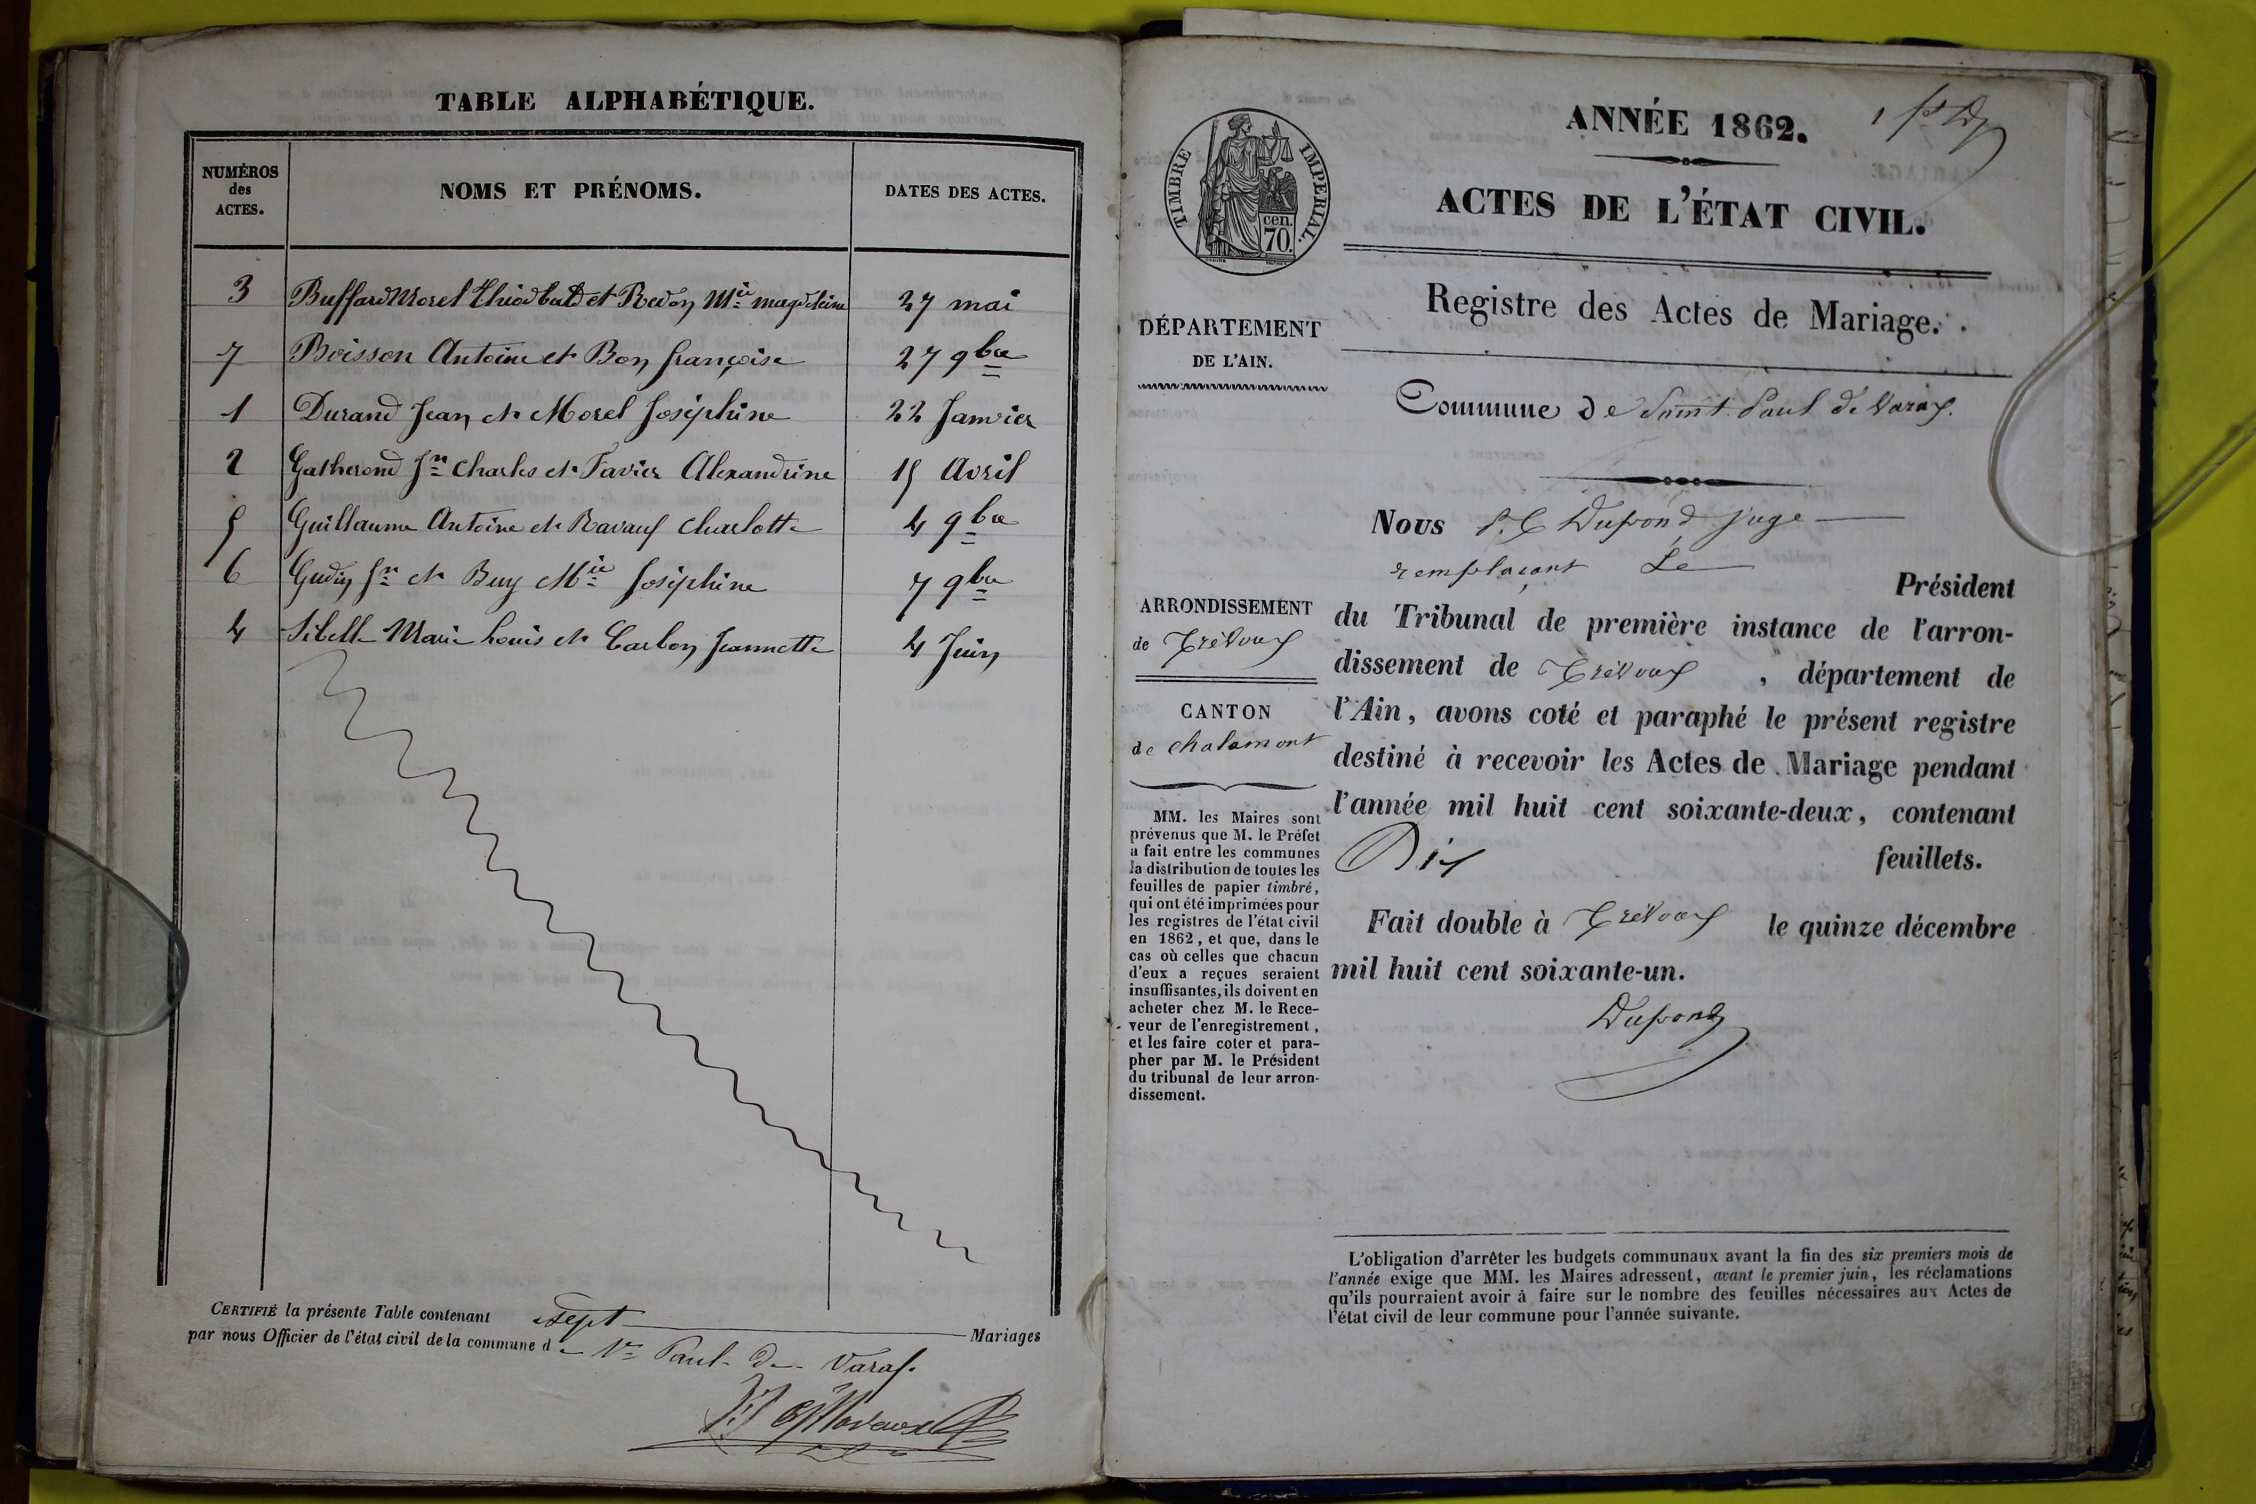 TABLE ALPHABÉTIQUE.
NUMÉROS des ACTES.
NOMS ET PRÉNOMS.
DATES DES ACTES.
3 Buffard Morel et Redon Mie magdeleine 27 mai
7 Boisson Antoine et Bon françoise 27 9bre
1 Durand Jean et Morel Joséphine 22 Janvier
2 Gatherond Charles et Favier Alexandrine 15 Avril
5 Guillaume Antoine et Ravaux Charlotte 4 9bre
6 Gudin et Buy Mie Joséphine 7 9bre
4 Sibelle Marie Louis et Carbon Jeannette 4 Juin
CERTIFIÉ la présente Table contenant sept Mariages
par nous Officier de l'état civil de la commune de St Paul de Varax.
TIMBRE IMPERIAL.
cen.
70.
ANNÉE 1862.
ACTES DE L'ÉTAT CIVIL.
Registre des Actes de Mariage.
Commune de Saint Paul de Varax.
DÉPARTEMENT
DE L'AIN.
ARRONDISSEMENT
de Trévoux
CANTON
de Chalamont
MM. les Maires sont
prévenus que M. le Préfet
a fait entre les communes
la distribution de toutes les
feuilles de papier timbré,
qui ont été imprimées pour
les registres de l'état civil
en 1862, et que, dans le
cas où celles que chacun
d'eux a reçues seraient
insuffisantes, ils doivent en
acheter chez M. le Rece-
veur de l'enregistrement,
et les faire coter et para-
pher par M. le Président
du tribunal de leur arron-
dissement.
Nous Dupond juge
remplaçant Le Président
du Tribunal de première instance de l'arron-
dissement de Trévoux, département de
l'Ain, avons coté et paraphé le présent registre
destiné à recevoir les Actes de Mariage pendant
l'année mil huit cent soixante-deux, contenant
Dix feuillets.
Fait double à Trévoux le quinze décembre
mil huit cent soixante-un.
Dupond
L'obligation d'arrêter les budgets communaux avant la fin des six premiers mois de
l'année exige que MM. les Maires adressent, avant le premier juin, les réclamations
qu'ils pourraient avoir à faire sur le nombre des feuilles nécessaires aux Actes de
l'état civil de leur commune pour l'année suivante.